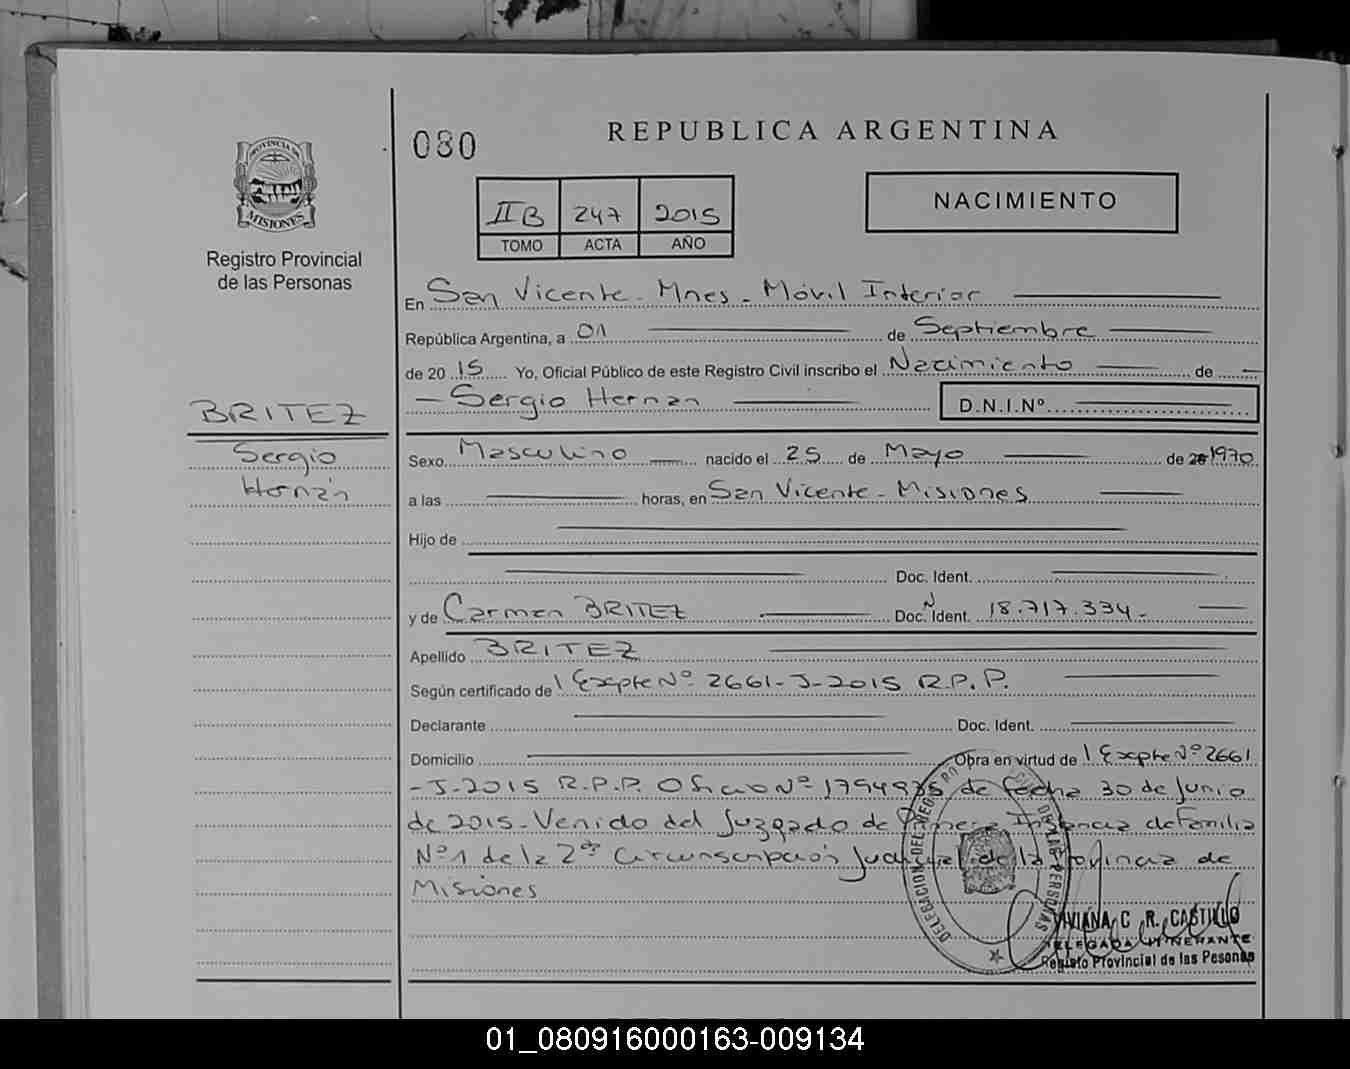 080
REPUBLICA ARGENTINA
PROVINCIA DE
MISIONES
Registro Provincial
de las Personas
II B 247 2015
TOMO ACTA AÑO
NACIMIENTO
En San Vicente - Mnes - Móvil Interior
República Argentina, a 01 de Septiembre
de 20 15 Yo, Oficial Público de este Registro Civil inscribo el Nacimiento de
- Sergio Hernan
D.N.I.Nº
BRITEZ
Sergio
Hernán
Sexo Masculino nacido el 25 de Mayo de 1970
a las horas, en San Vicente - Misiones
Hijo de
Doc. Ident.
y de Carmen BRITEZ Doc. N Ident. 18.717.334.-
Apellido BRITEZ
Según certificado de Expte Nº 2661-J-2015 R.P.P.
Declarante Doc. Ident.
Domicilio Obra en virtud de Expte Nº 2661
-J-2015 R.P.P. Oficio Nº 1794935 de fecha 30 de Junio
de 2015 - Venido del Juzgado de Primera Instancia de Familia
Nº 1 de la 2da Circunscripción Judicial de la Provincia de
Misiones
DELEGACION DEL REGISTRO
DE LAS PERSONAS
VIVIANA C. R. CASTILLO
DELEGADA ITINERANTE
Registo Provincial de las Pesonas
01_080916000163-009134